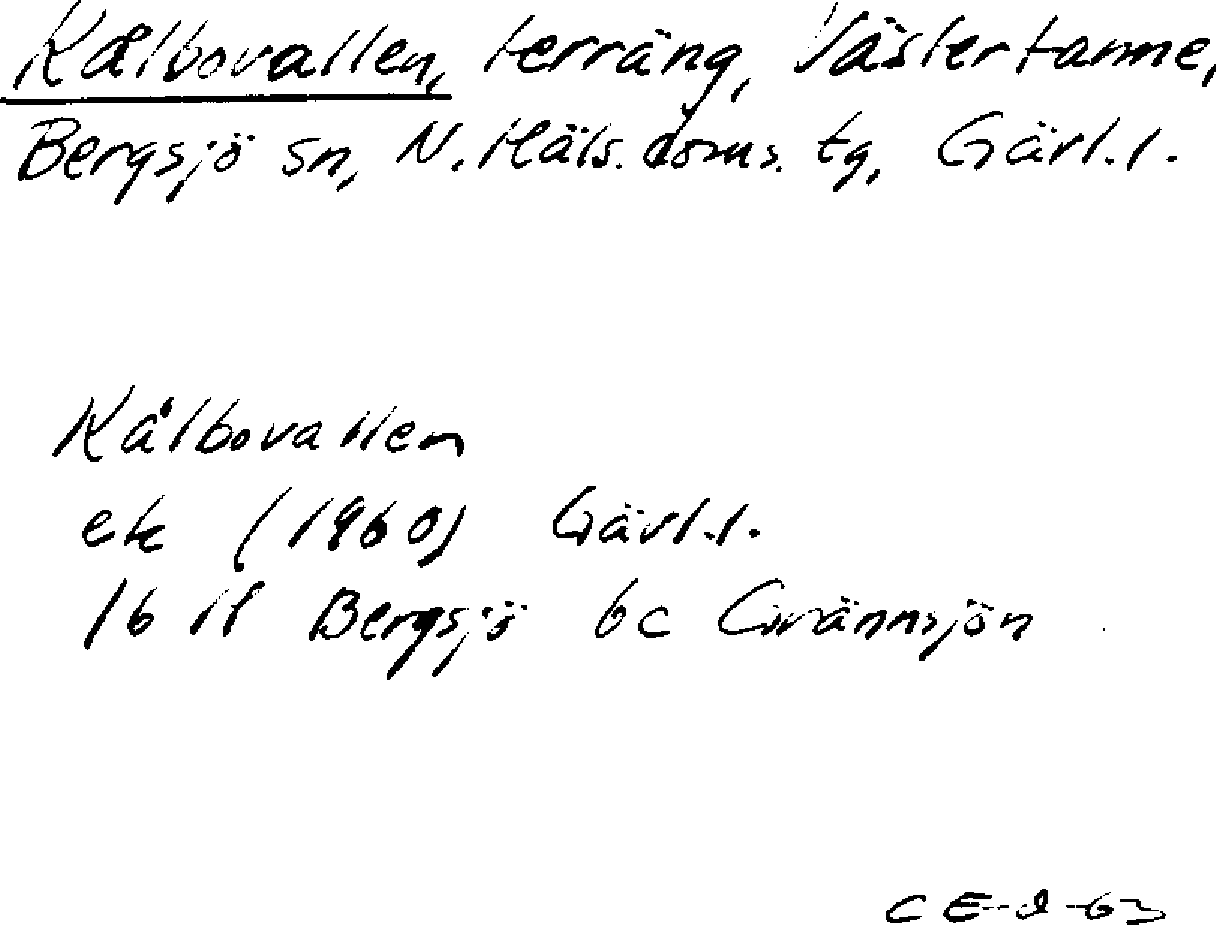 Kålbovallen, terräng, Västertanne,
Bergsjö sn, N. Häls. doms. tg, Gävl.l.
Kålbovallen
ek (1960) Gävl.l.
16 H Bergsjö 6c Grännsjön
CE-d-63